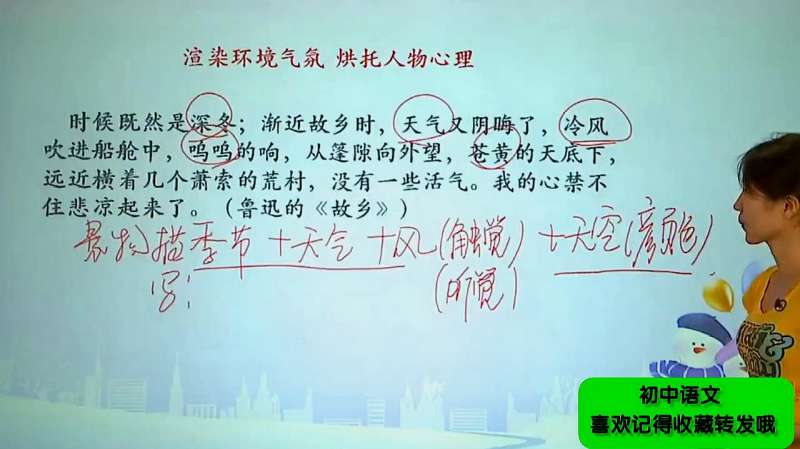 渲染环境气氛 烘托人物心理
时候既然是深冬；渐近故乡时，天气又阴晦了，冷风
吹进船舱中，呜呜的响，从篷隙向外望，苍黄的天底下，
远近横着几个萧索的荒村，没有一些活气。我的心禁不
住悲凉起来了。（鲁迅的《故乡》）
景物描 季节+天气+风(触觉)+天空(颜色)
写： (听觉)
初中语文
喜欢记得收藏转发哦